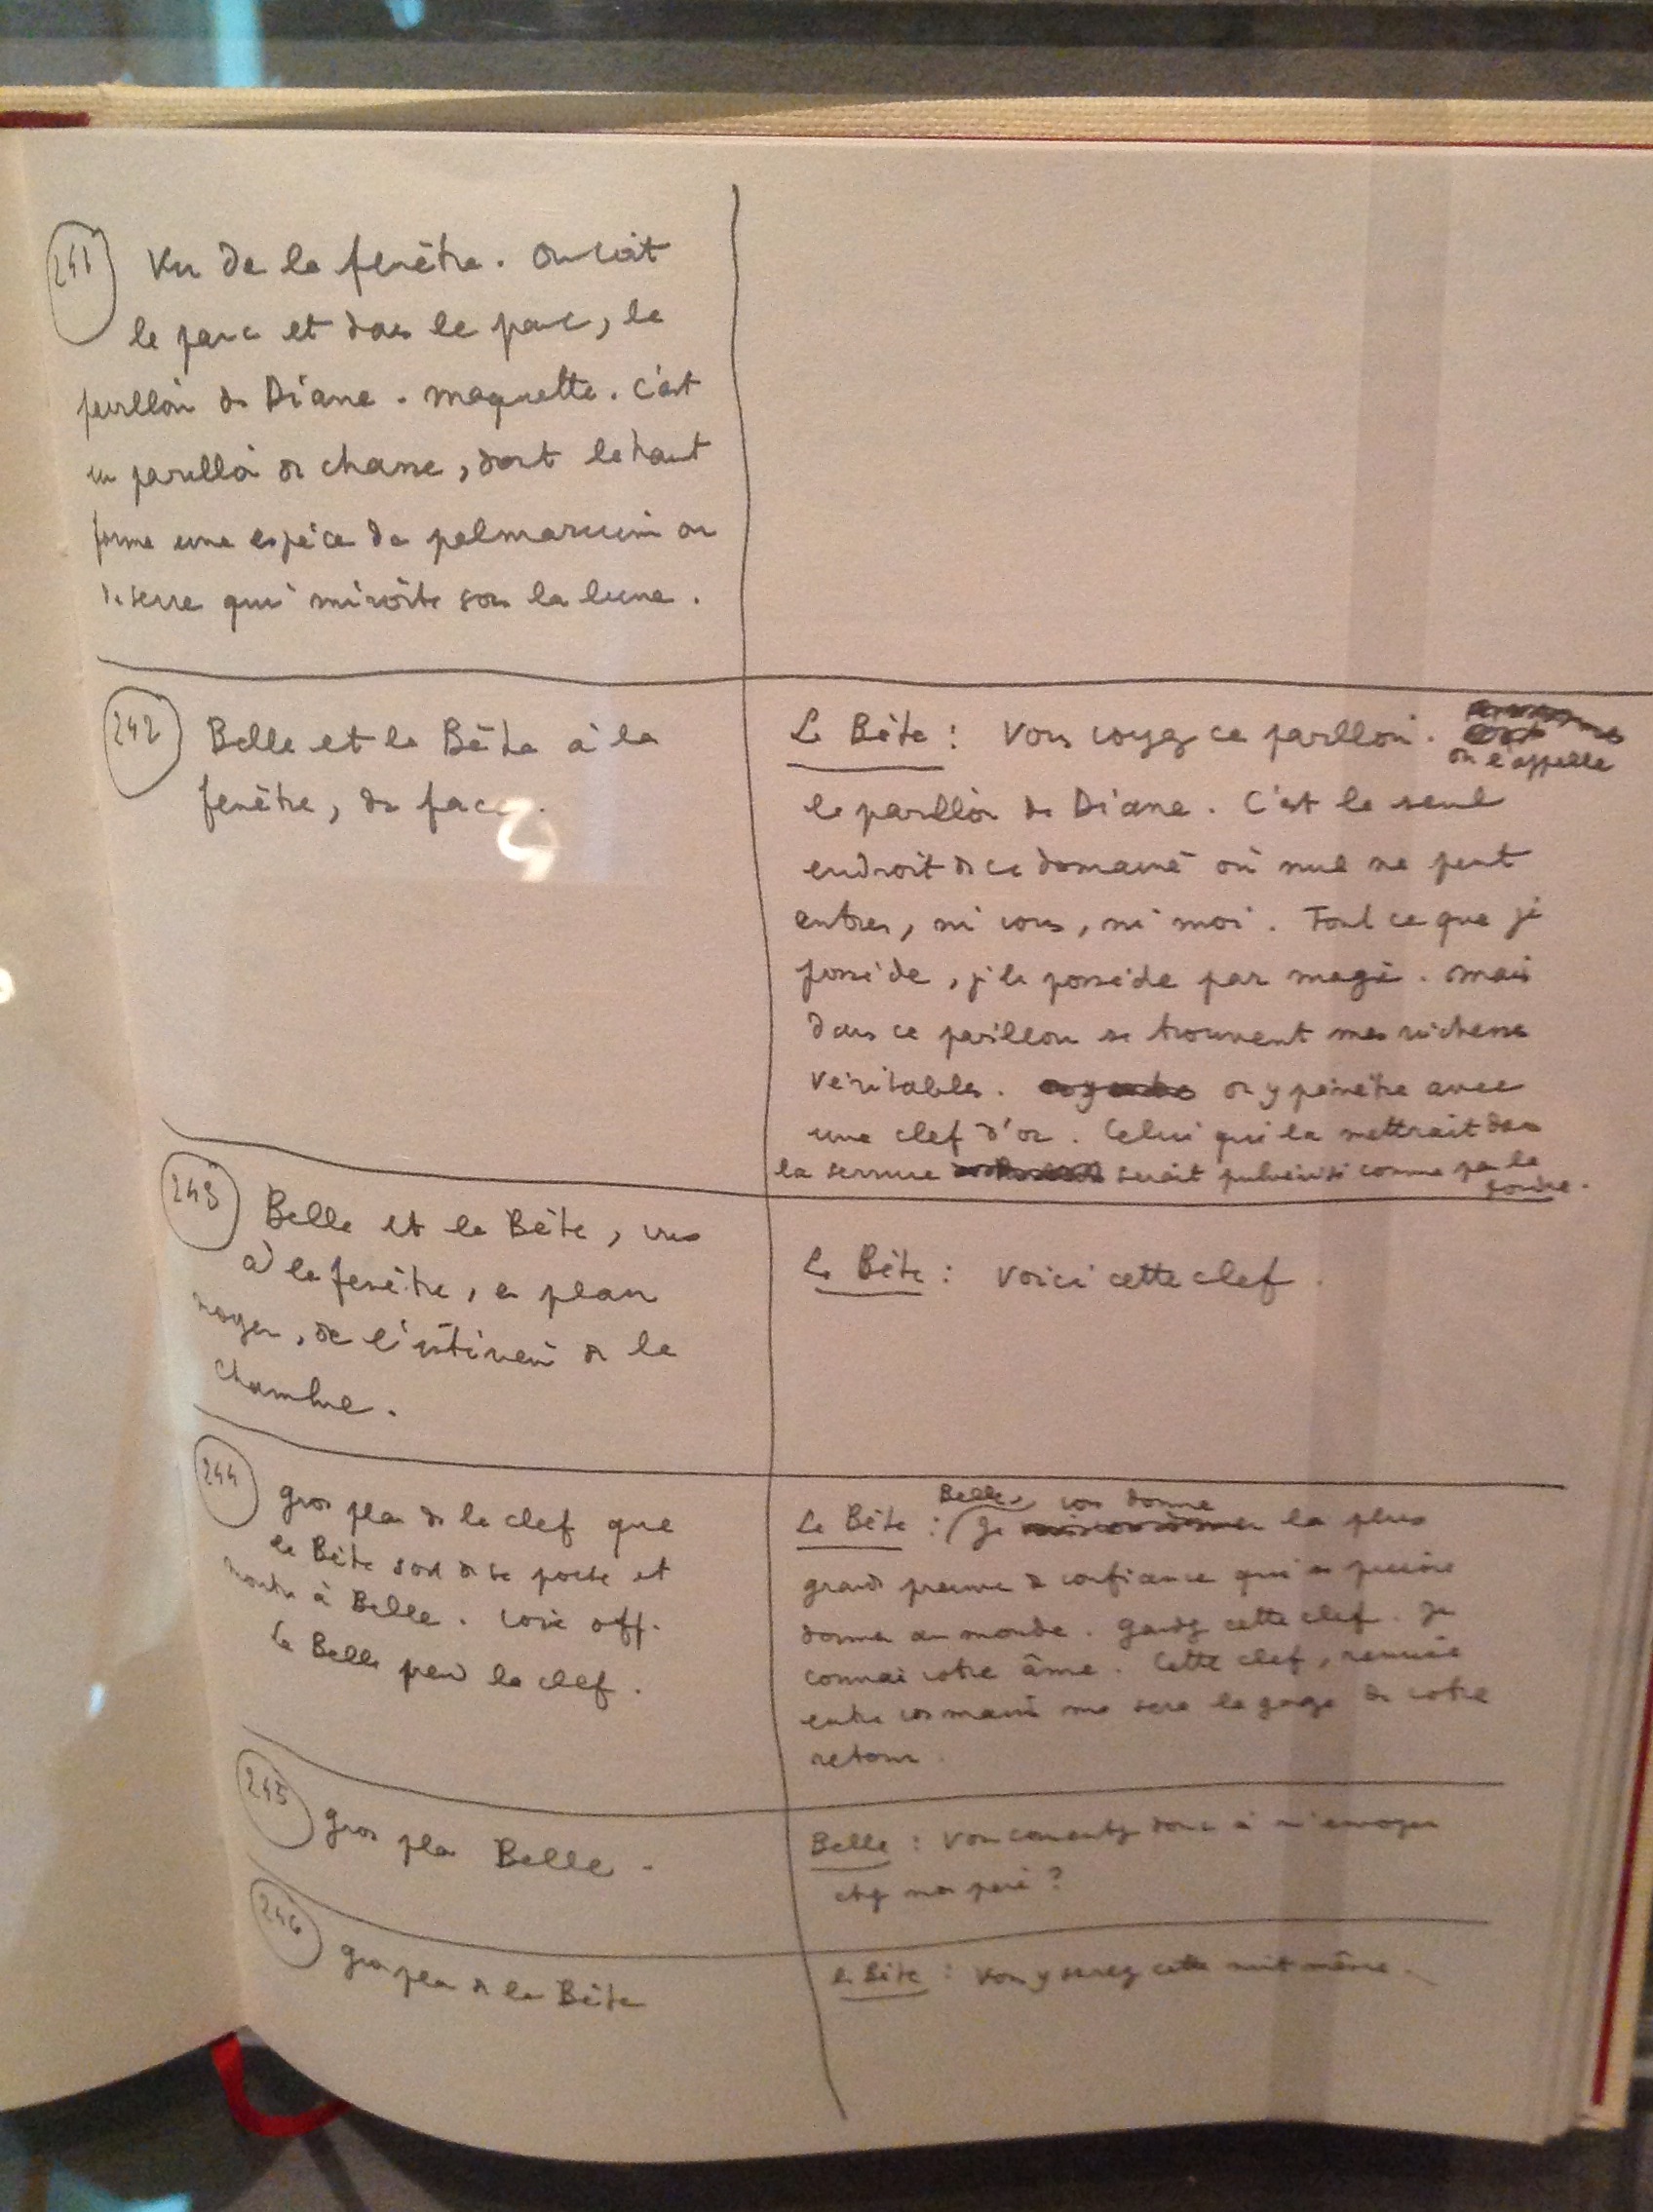 241
Vu de la fenêtre. On voit
le parc et dans le parc, le
pavillon de Diane. maquette. C'est
un pavillon de chasse, dont le haut
forme une espèce de palmarium ou
de serre qui miroite sous la lune.
242
Belle et la Bête à la
fenêtre, de face.
La Bête : Vous voyez ce pavillon.
on l'appelle
le pavillon de Diane. C'est le seul
endroit de ce domaine où nul ne peut
entrer, ni vous, ni moi. Tout ce que je
possède, je le possède par magie. mais
dans ce pavillon se trouvent mes richesses
véritables. on y pénètre avec
une clef d'or. Celui qui la mettrait dans
la serrure serait pulvérisé comme par la
foudre.
243
Belle et la Bête, vus
à la fenêtre, en plan
moyen, de l'intérieur de la
chambre.
La Bête : Voici cette clef.
244
gros plan de la clef que
la Bête sort de sa poche et
montre à Belle. voix off.
La Belle prend la clef.
Belle, vous donne
La Bête : Je la plus
grande preuve de confiance qui se puisse
donner au monde. gardez cette clef. Je
connais votre âme. Cette clef, remise
entre vos mains me sera le gage de votre
retour.
245
gros plan Belle.
Belle : Vous consentez donc à m'envoyer
chez mon père ?
246
gros plan de la Bête
la Bête : Vous y serez cette nuit même.